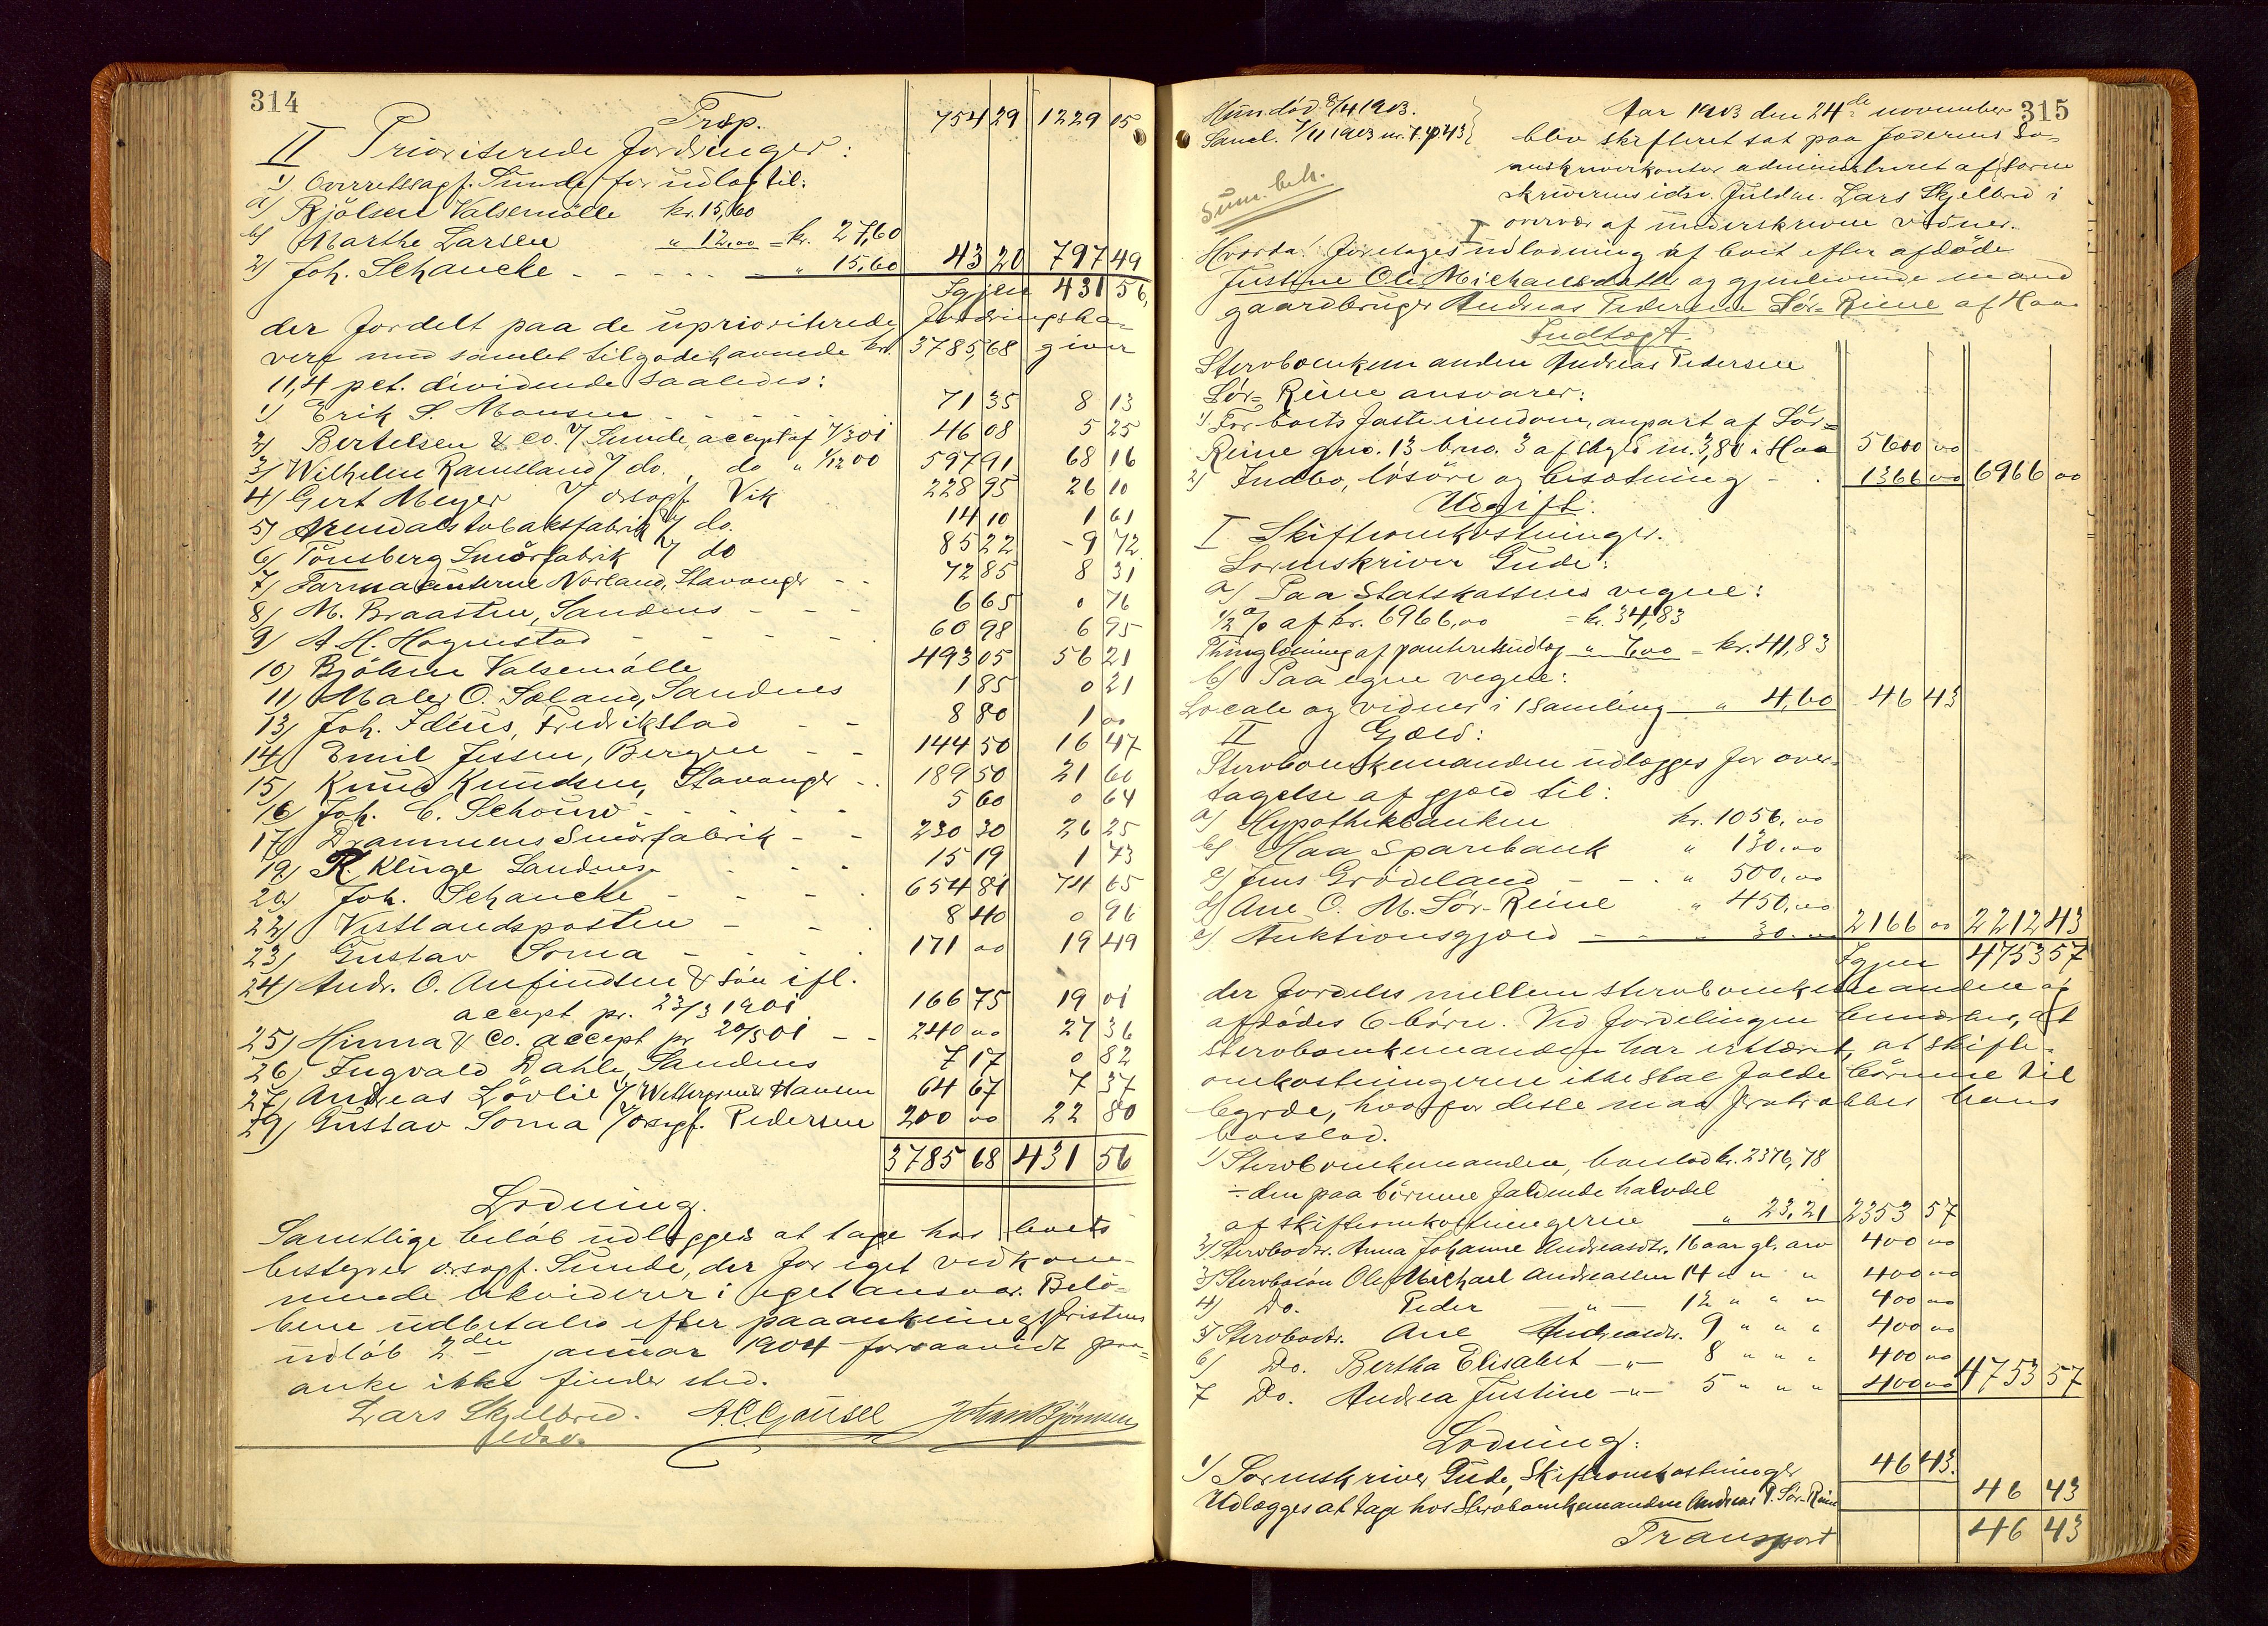 314
Trsp. 754 29 1229 05
II Prioriterede fordringer:
1) Overretssagf. Sunde for udlæg til:
a) Bjölsen Valsemölle kr. 15,60
b) Marthe Larsen " 12,00 = kr. 27,60
2) Joh. Schancke - - - - - " 15,60 43 20 797 49
Igjen 431 56,
der fordelt paa de uprioriterede fordringsha-
vere med samlet tilgodehavende kr. 3785,68 giver
11,4 pct. dividende saaledes:
1) Erik S. Monsen - - - - - - 71 35 8 13
2) Bertelsen & Co. v/ Sunde, accept af 1/3 01 46 08 5 25
3) Wilhelm Ramsland v/ do. " do " 1/12 00 597 91 68 16
4) Gert Meyer v/ orsagf. Vik 228 95 26 10
5) Arendals tobaksfabrik v/ do. 14 10 1 61
6) Tönsberg Smörfabrik v/ do 85 22 - 9 72
7) Farmaceuterne Norland, Stavanger - - 72 85 8 31
8) M. Braasten, Sandnes - - - 6 65 0 76
9) A. H. Hognestad - - - - - 60 98 6 95
10) Bjölsen Valsemölle 493 05 56 21
11) Maler O. Soland, Sandnes 1 85 0 21
13) Joh. Idéus, Fredrikstad - - 8 80 1 00
14) Emil Jessen, Bergen - - 144 50 16 47
15) Knud Knudsen, Stavanger - . 189 50 21 60
16) Joh. C. Schouw - - - - 5 60 0 64
17) Drammens Smörfabrik - - 230 30 26 25
19) R. Kluge Sandnes - - - 15 19 1 73
20) Joh. Schancke - - - . 654 81 74 65
22) Vestlandsposten - - . 8 40 0 96
23) Gustav Soma - - - . 171 00 19 49
24) Andr. O. Anfindsen & Sön ifl.
accept pr. 23/3 1901 166 75 19 01
25) Hinna & Co. accept pr 20/5 01 - - 240 00 27 36
26) Ingvald Dahle, Sandnes 7 17 0 82
27) Andreas Lövlie v/ Hansen 64 67 7 37
29) Gustav Soma v/ orsgf. Pedersen 200 00 22 80
3785 68 431 56
Lodning.
Samtlige belöb udlægges at tage hos boets
bestyrer orsagf. Sunde, der for eget vedkom-
mende likviderer i eget ansvar. Belö-
bene udbetales efter paaankningsfristens
udlöb 2den januar 1904 forsaavidt paa-
anke ikke finder sted.
Lars Skjelbred. A. C. Gausel Johan Björnsen
edsv.
315
Hun död 8/4 1903.
Saml. 7/11 1903 nr. 7. p. 43
Sum. beh.
Aar 1903 den 24de november
blev skifteret sat paa Jæderens So-
renskriverkontor administreret af Soren
skriverens edsv. fuldm. Lars Skjelbred i
overvær af underskrevne vidner.
Hvorda: Foretoges udlodning af boet efter afdöde
Justine Ole Michaelsdatter og gjenlevende mand
gaardbruger Andreas Pedersen Sör-Reime af Haa.
Indtægt.
Stervboenkemanden Andreas Pedersen
Sör-Reime ansvarer:
1) For boets faste eiendom, anpart af Sör-
Reime gno. 13 brno. 3 af skyld m. 3,80 i Haa 5600 00
2) Indbo, lösöre og besætning - . 1366 00 6966 00
Udgift.
I Skifteomkostninger.
Sorenskriver Gude:
a) Paa Statskassens vegne:
1/2 % af kr. 6966,00 = kr. 34,83
Thinglæsning af panteretsudlæg " 7,00 = kr. 41,83
b) Paa egne vegne:
Locale og vidner i 1 samling - " 4,60 46 43
II Gjæld:
Stervboenkemanden udlægges for over-
tagelse af gjæld til:
a) Hypothekbanken kr. 1056,00
b) Haa Sparebank " 130,00
c) Jens Grödeland - - . " 500,00
d) Ane O. M. Sör-Reime " 450,00
e) Auktionsgjæld - - - " 30,00 2166 00 2212 43
Igjen 4753 57
der fordeles mellem stervboenkemanden og
afdödes 6 börn. Ved fordelingen bemærkes, at
stervboenkemanden har erklæret, at skifte-
omkostningerne ikke skal falde börnene til
byrde, hvorfor disse maa fratrækkes hans
boeslod.
1) Stervboenkemanden, boeslod kr. 2376,78
÷ den paa börnene faldende halvdel
af skifteomkostningerne " 23,21 2353 57
2) Stervbodtr. Anna Johanne Andreasdtr. 16 aar gl. arv 400 00
3) Stervbosön Ole Michael Andreassen 14 " " " 400 00
4) Do. Peder - " - 12 " " " 400 00
5) Stervbodtr. Ane Andreasdtr. 9 " " " 400 00
6) Do. Bertha Elisabet - " - 8 " " " 400 00
7 Do. Andrea Justine - " - 5 " " " 400 00 4753 57
Lodning:
1) Sorenskriver Gude, Skifteomkostninger 46 43.
Udlægges at tage hos Stervboenkemanden Andreas P. Sör-Reime 46 43
Transport 46 43